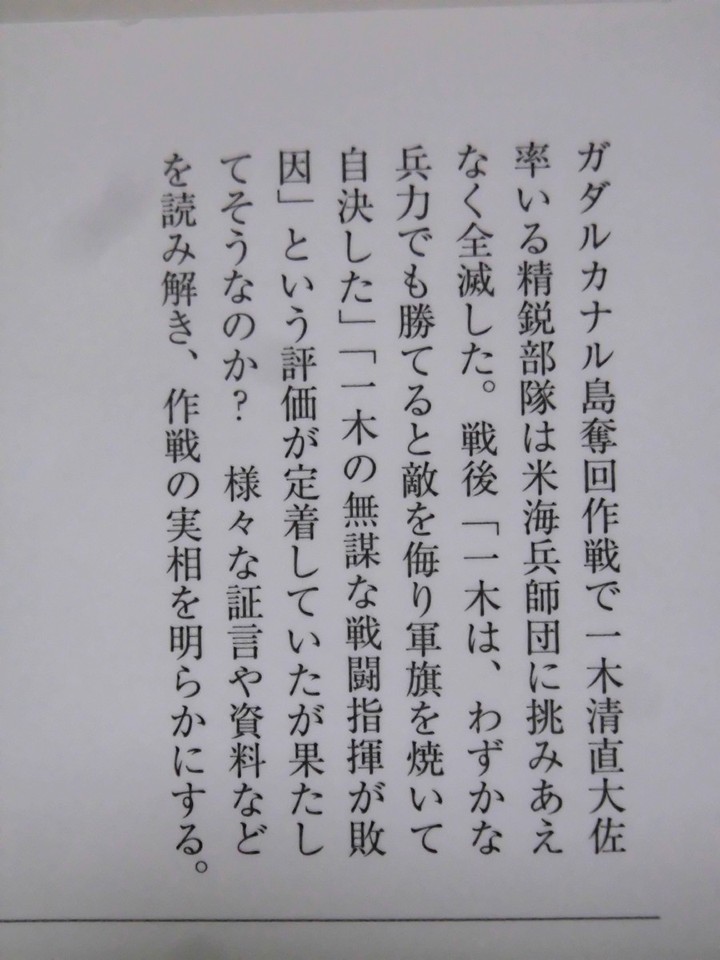 ガダルカナル島奪回作戦で一木清直大佐
率いる精鋭部隊は米海兵師団に挑みあえ
なく全滅した。戦後「一木は、わずかな
兵力でも勝てると敵を侮り軍旗を焼いて
自決した」「一木の無謀な戦闘指揮が敗
因」という評価が定着していたが果たし
てそうなのか?　様々な証言や資料など
を読み解き、作戦の実相を明らかにする。